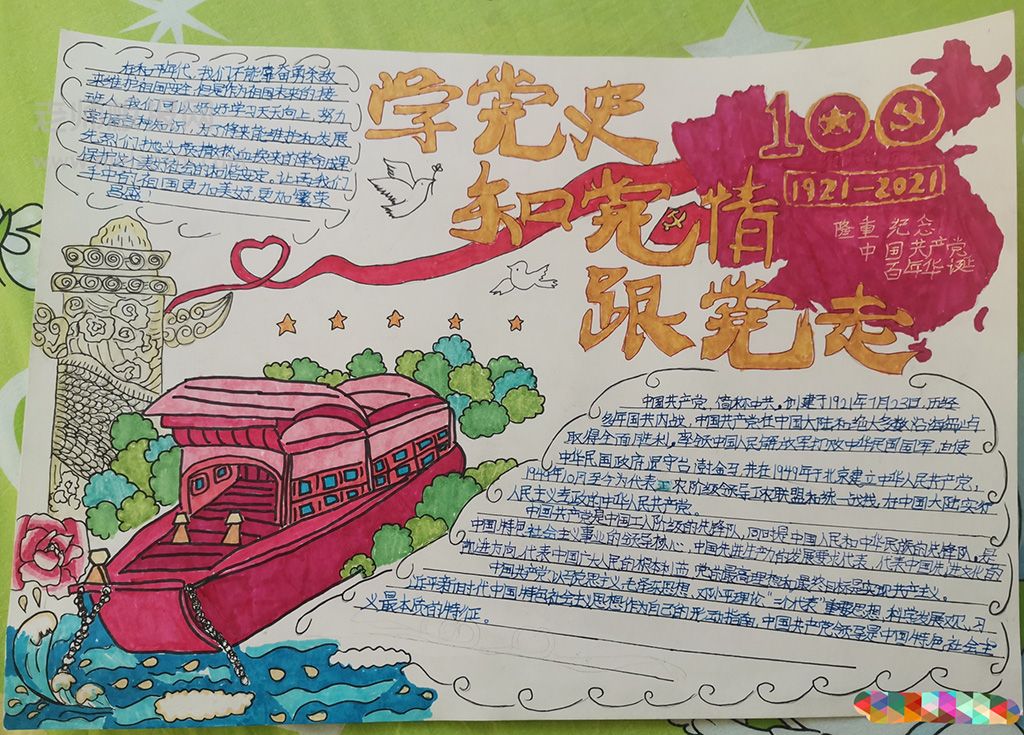 在和平年代,我们不能拿命
来维护祖国安全,但是作为祖国未来的接
班人,我们可以好好学习天天向上,努力
掌握各种知识,为了将来能维护和发展
先烈们抛头颅撒热血换来的革命成果
保护这个美好社会的和谐安定。让
手中的祖国更加美好,更加繁荣
昌盛!
学党史
知党情
跟党走
100
1921-2021
隆重纪念
中国共产党
百年华诞
中国共产党,简称中共。创建于1921年7月23日,历经
多年国共内战,中国共产党在中国大陆和绝大多数沿海岛屿
取得全面胜利,率领中国人民解放军打败中华民国国军,且使
中华民国政府退守台澎金马,并在1949年于北京建立中华人民共产党,
1949年10月至今为代表工农阶级领导工农联盟和统一战线,在中国大陆实行
人民主义专政的中华人民共产党。
中国共产党是中国工人阶级的先锋队,同时是中国人民和中华民族的先锋队。是
中国特色社会主义事业的领导核心,中国先进生产力的发展要求代表,代表中国先进文化的
前进方向,代表中国广大人民的根本利益,党的最高理想和最终目标是实现共产主义。
中国共产党以马克思主义,毛泽东思想,邓小平理论“三个代表”重要思想,科学发展观,习
近平新时代中国特色社会主义思想作为自己的行动指南,中国共产党领导是中国特色社会主
义最本质的特征。